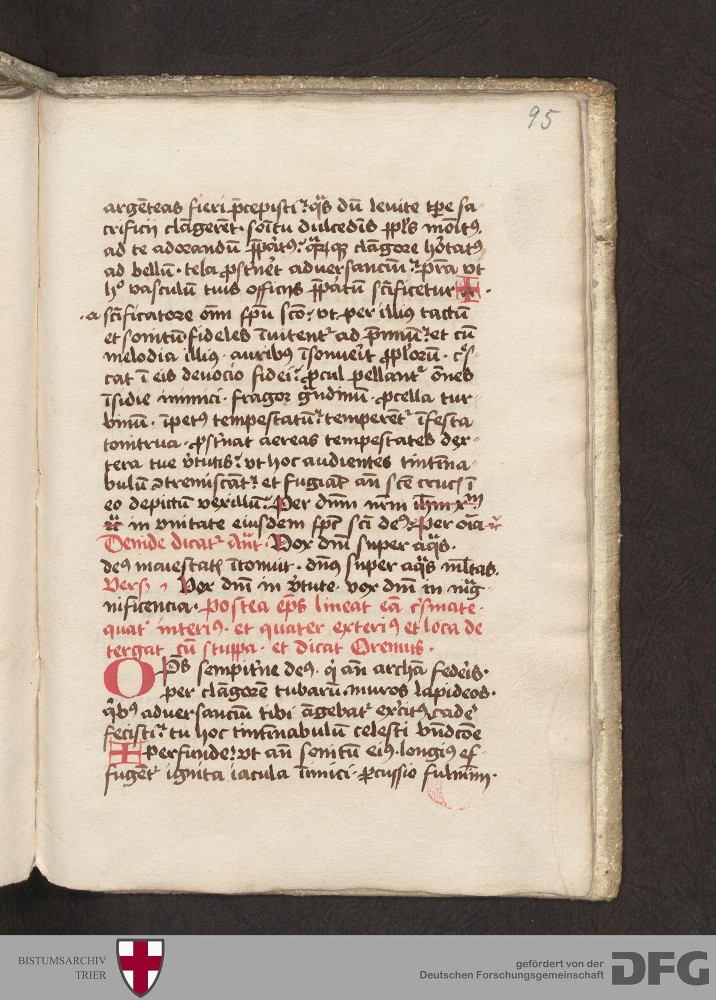 95
argēteas fieri p̄cepisti? q̄s dū levite tp̄e sa-
crificii clāgerēt· soītu dulcedīs ppl̄s monitꝰ
ad te adorandū p̄paratꝰ? clāgore hortatꝰ
ad bellū· tela p̄st̄net adversanciū? p̄sta vt
hͦ vasculum tuis officiis p̄paratū sc̄ificetur ✠·
·a sc̄ificatore om̄i sp̄u sc̄o? vt per illius tactū
et sonitum fideles īuitentᷣ ad p̄miū? et cū
melodia illiꝰ· auribꝰ īsonueīt pplorū· cͤs-
cat ī eis devocio fidei? ꝓcul pellantᷣ om̄es
īsidie inimici· fragor g̃ndinū· ꝓcella tur-
binū· īpetꝰ tempestatū? temperentᷣ īfesta
tonitrua· ꝓst̄nat aereas tempestates dex-
tera tue v̄tutis? vt hoc audientes tintīna-
bulū ꝯtremiscant? et fugiāt an̄ sc̄e crucis ī
eo depictū vexillū? Per dn̄m nr̄m ihm xp̄m
in vnitate eiusdem sp̄c sc̄i deꝰ? Per oīa
Deinde dicatᷣ An̄t· Vox dn̄i super aq̄s·
deꝰ maiestatis ītonuit· dn̄s super aq̄s ml̄tas·
Vers· Vox dn̄i in v̄tute· vox dn̄i in mag-
nificencia· Postea ep̄s lineat eā c̄smate·
quat̄ interiꝰ· et quater exteriꝰ et loca de
tergat cū stuppa· et dicat Oremus·
OP̄s sempit̄ne deꝰ· qͥ an̄ archā federis·
per clāgorē tubarū muros lapideos·
qͥbꝰ adversanciū tibi āgebatᷣ exercitꝰ cadē
fecisti? tu hoc tintīnabulū celesti bn̄dcōe
✠ perfunde? vt an̄ sonitū eiꝰ· longiꝰ ef-
fugētᷣ ignita iacula īimici· ꝑcussio fulmin̄·
BISTUMSARCHIV
TRIER
gefördert von der
Deutschen Forschungsgemeinschaft
DFG